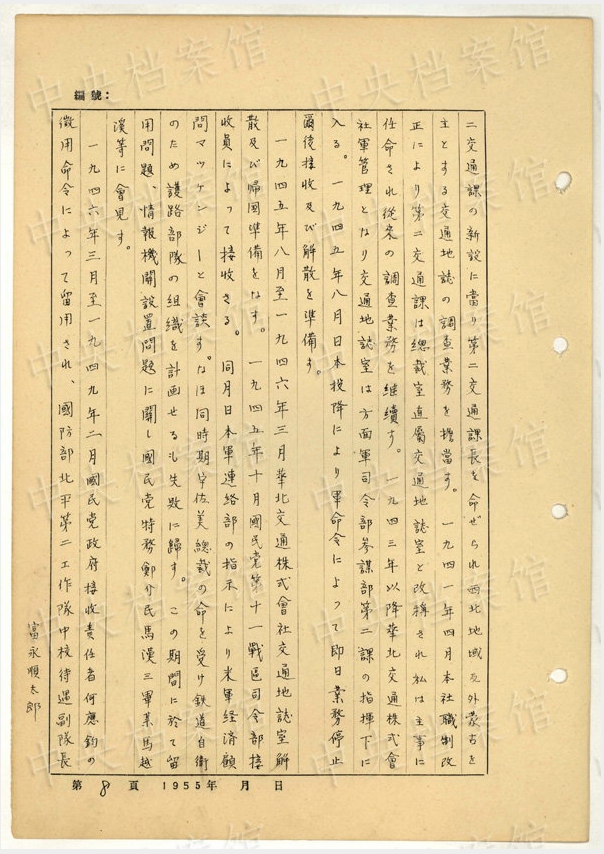 編號：
二交通課の新設に當り第二交通課長を命ぜられ西北地域及外蒙古を
主とする交通地誌の調査業務を擔當す。一九四一年四月本社職制改
正により第二交通課は總裁室直屬交通地誌室と改稱され私は主事に
任命され従来の調査業務を継續す。一九四三年以降華北交通株式會
社軍管理となり交通地誌室は方面軍司令部参謀部第二課の指揮下に
入る。一九四五年八月日本投降により軍命令によって即日業務停止
爾後接收及び解散を準備す。
一九四五年八月至一九四六年三月華北交通株式會社交通地誌室解
散及び帰國準備をなす。一九四五年十月國民党第十一戰區司令部接
收員によって接收さる。同月日本軍連絡部の指示により米軍経済顧
問マッケンジーと會談す。なほ同時期宇佐美總裁の命を受け鉄道自衛
のため護路部隊の組織を計画せるも失敗に歸す。この期間に於て留
用問題、情報機関設置問題に関し國民党特務鄭介民馬漢三軍業馬越
溪等に會見す。
一九四六年三月至一九四九年二月國民党政府接收責任者何應鈞の
徴用命令によって留用され、國防部北平第二工作隊中校待遇副隊長
富永順太郎
第 8 頁 1955年 月 日
中央档案馆